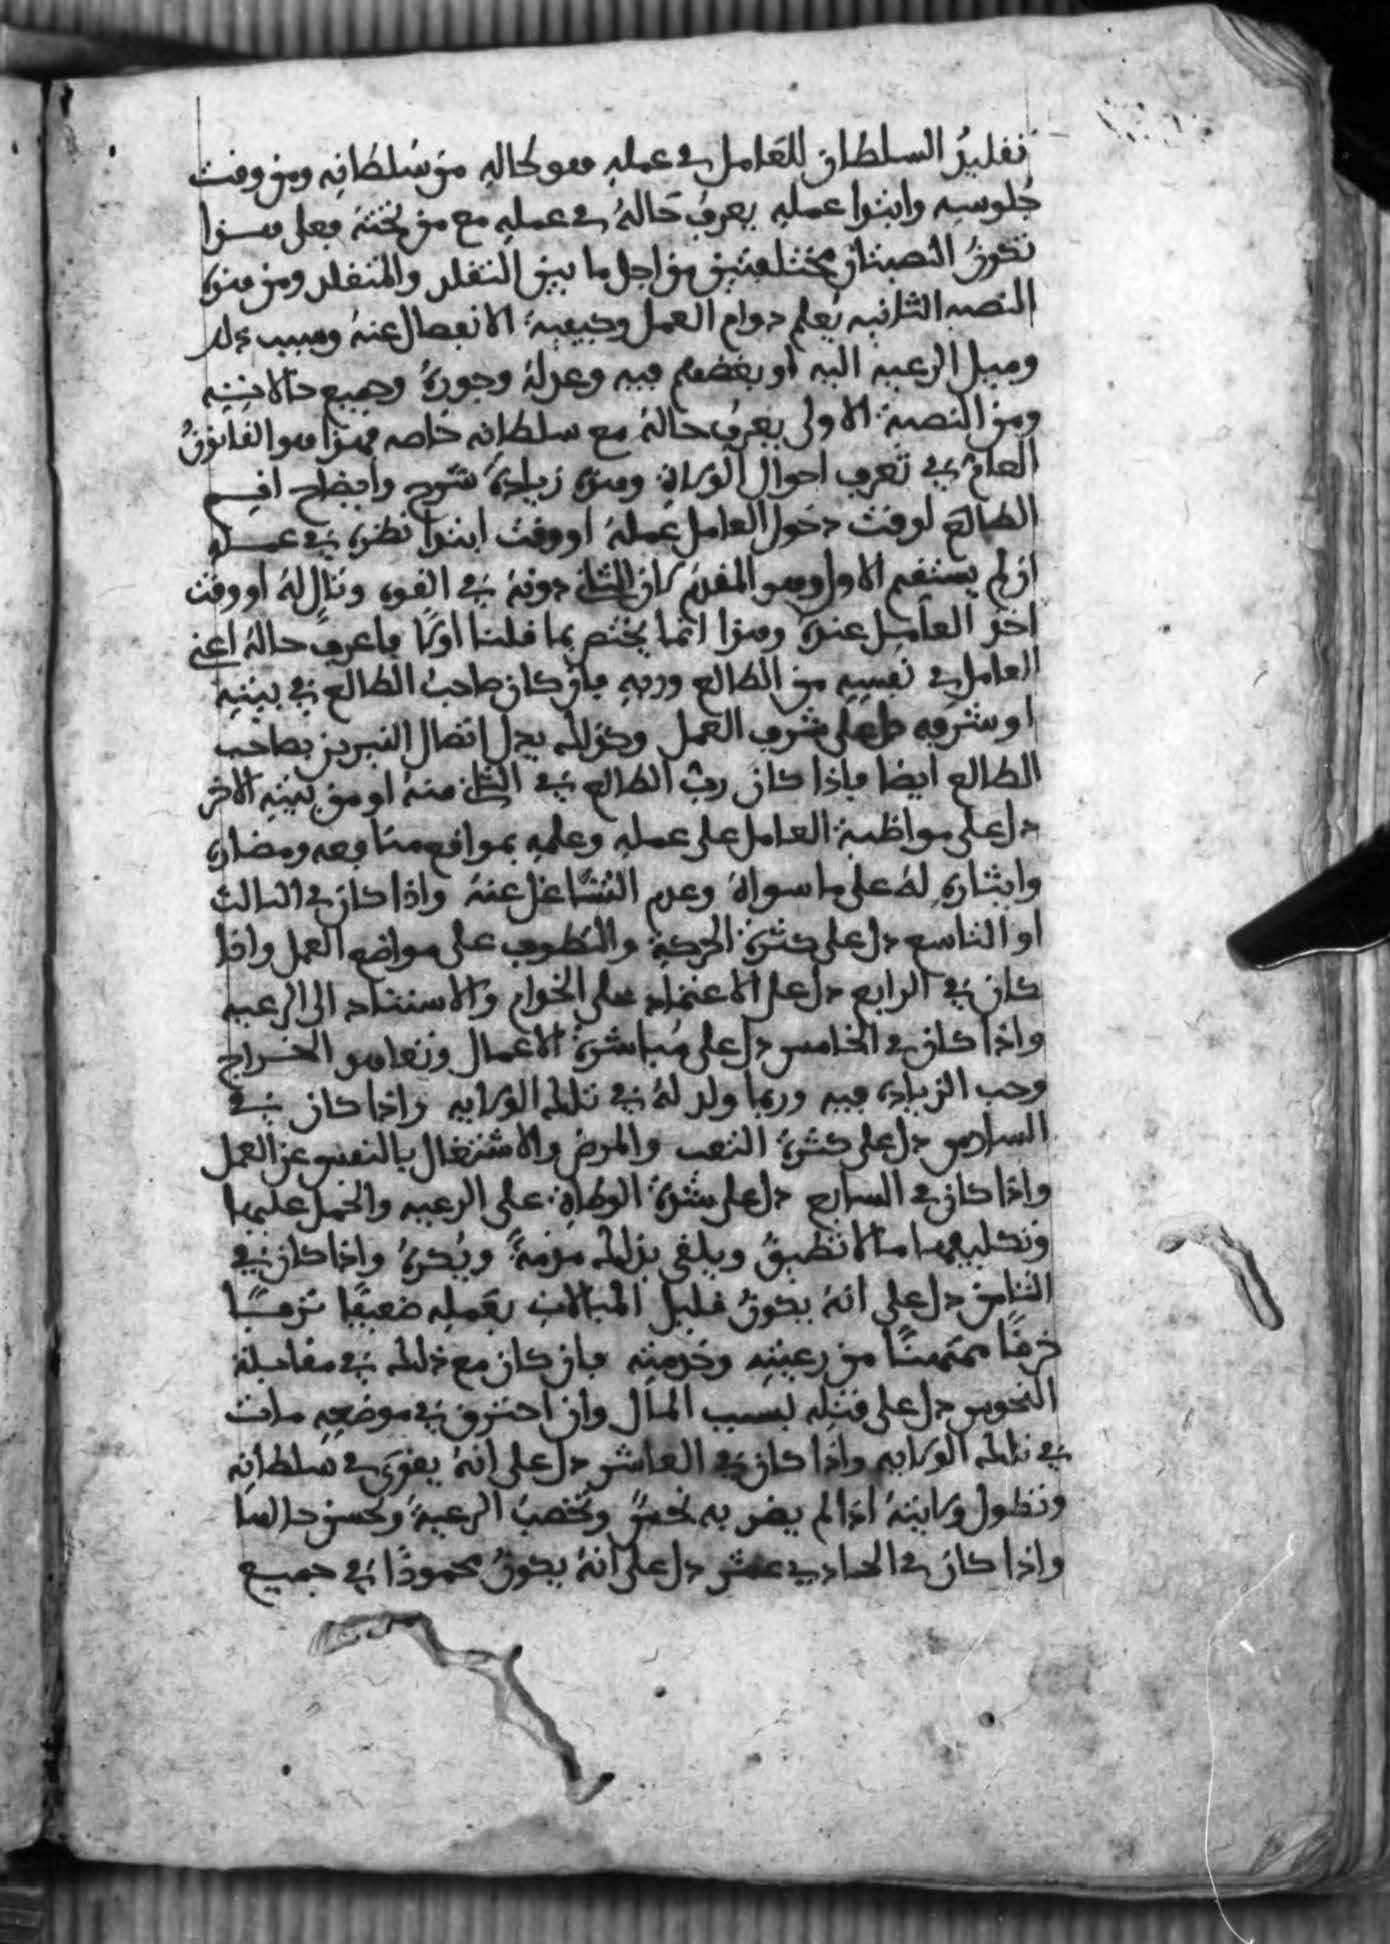 تقليد السلطان للعامل في عمله فهو كحاله من سلطانه ومن وقت
جلوسه وابتدا عمله يعرف حاله في عمله مع من تحته فعلى هذا
تكون النصبتان مختلفتين من اجل ما بين التقلد والمتقلد ومن هذه
النصبه الثانيه يعلم دوام العمل وكيفية الانفصال عنه وسبب ذلك
وميل الرعيه اليه او بغضهم فيه وعدله وجوره وجميع حالاته
ومن النصبة الاولى يعرف حاله مع سلطانه خاصه فهذا هو القانون
العام في تعرف احوال الولاة وهذه زيادة شرح وايضاح اقم
الطالع لوقت دخول العامل عمله او وقت ابتدا نظره في عمله
ان لم يستقم الاول وهو المقدم كان الثاني دونه في القوه وتال له او وقت
اخذ العامل عنده وهذا انما يختص بما قلنا اولا فاعرف حاله اعني
العامل في نفسه من الطالع وربه فان كان صاحب الطالع في بيته
او شرفه دل على شرف العمل وكذلك يدل اتصال النيرين بصاحب
الطالع ايضا فاذا كان رب الطالع في الثاني منه او من بيته الاخر
دل على مواظبة العامل على عمله وعلمه بمواقع منافعه ومضاره
وايثاره له على ما سواه وعدم التشاغل عنه واذا كان في الثالث
او التاسع دل على كثرة الحركة والتطوف على مواضع العمل واذا
كان في الرابع دل على الاعتماد على الخوام والاستناد الى الرعيه
واذا كان في الخامس دل على مباشرة الاعمال وتعاهد الخراج
وحب الزياده فيه وربما ولد له في تلك الولايه واذا كان في
السادس دل على كثرة التعب والمرض والاشتغال بالنفس عن العمل
واذا كان في السابع دل على شدة الوطاة على الرعيه والحمل عليها
وتكليفهما ما لا تطيق ويلقى بذلك مذمة ويكره واذا كان في
الثامن دل على انه يكون قليل المبالات بعمله ضعيفا
خرفا ممتهنا من رعيته وخدمته فان كان مع ذلك في مقابلة
النحوس دل على قتله بسبب المال وان احترق في موضعه مات
في تلك الولايه واذا كان في العاشر دل على انه يقوى في سلطانه
وتطول ولايته اذا لم يضر به نحس وتخصب الرعية وتحسن حالها
واذا كان في الحادي عشر دل على انه يكون محمودا في جميع